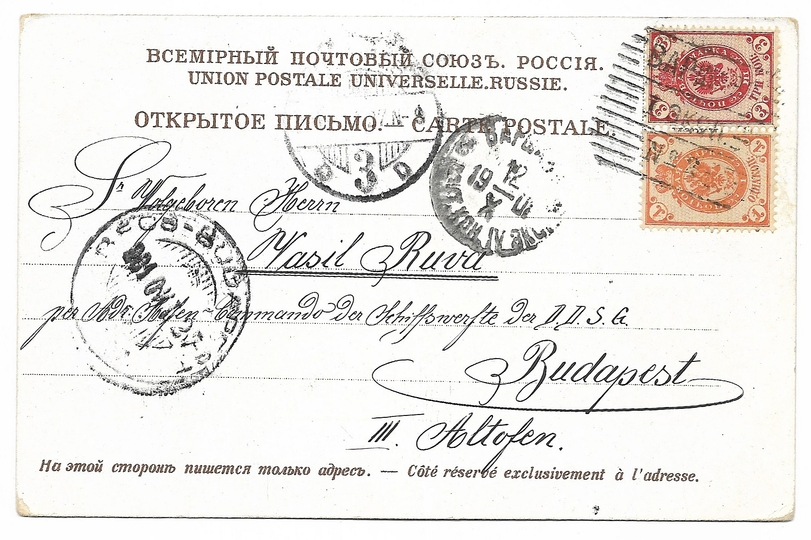 ВСЕМІРНЫЙ ПОЧТОВЫЙ СОЮЗЪ. РОССІЯ.
UNION POSTALE UNIVERSELLE. RUSSIE.
ОТКРЫТОЕ ПИСЬМО. — CARTE POSTALE.
Sr Wolgeboren Herrn
Vasil Ruva
per Adr. Hafen-Commando der Schiffswerfte der D.D.S.G.
Budapest
III. Altofen.
На этой сторонѣ пишется только адресъ. — Côté réservé exclusivement à l'adresse.
3
12
19
X